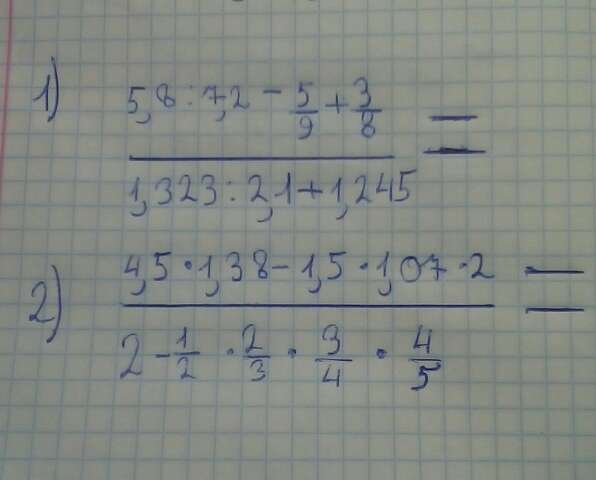 1) (5,8 : 7,2 - 5/9 + 3/8) / (1,323 : 2,1 + 1,245) =
2) (4,5 · 1,38 - 1,5 · 1,07 · 2) / (2 - 1/2 · 2/3 · 3/4 · 4/5) =